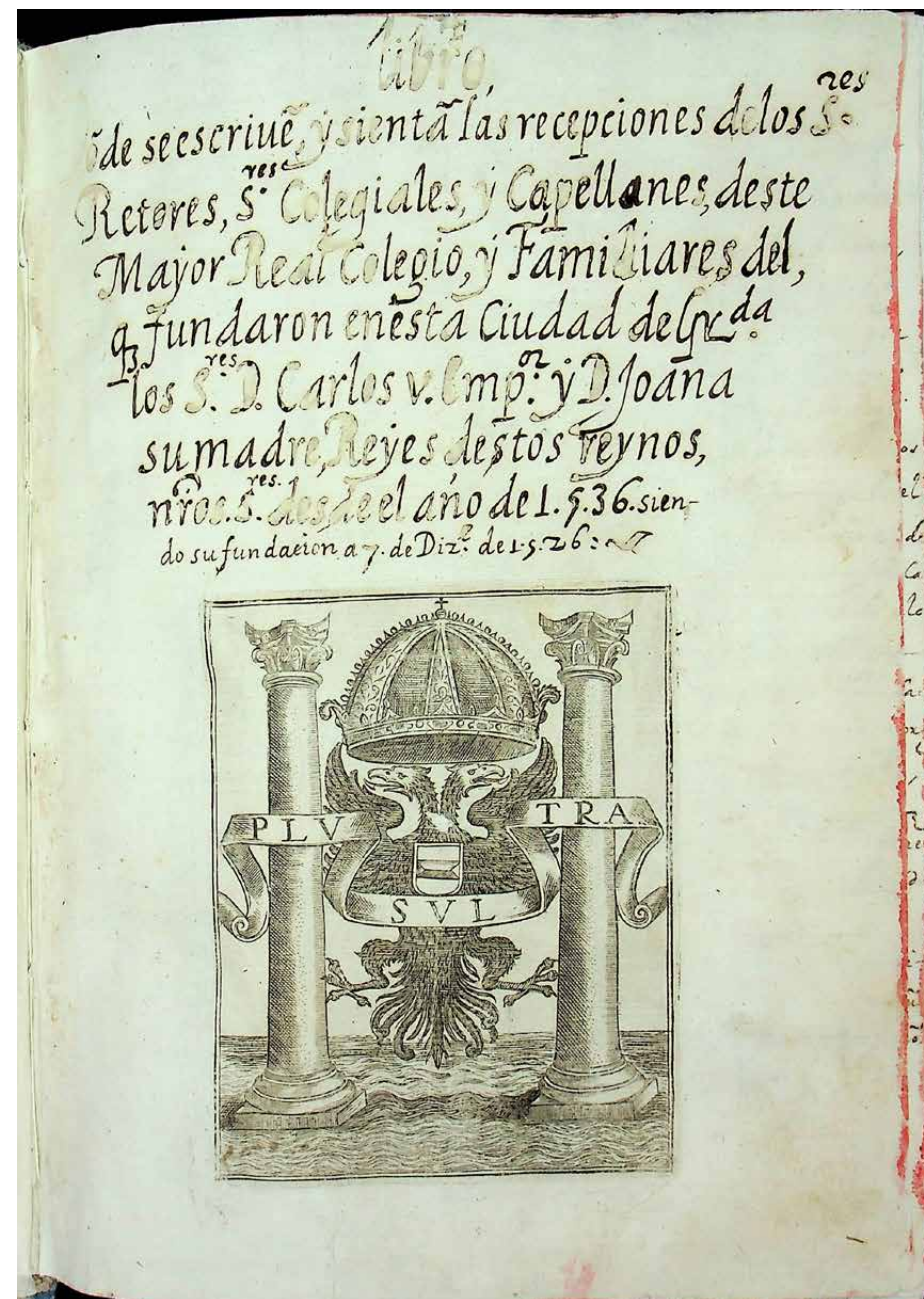 libro,
õde se escriue, y sientã las recepciones de los S.res
Retores, S.res Colegiales, y Capellanes, deste
Mayor Real Colegio, y Familiares del,
q̃ fundaron en esta Ciudad de Gr.da
los S.res D. Carlos v. Emp.or y D. Joana
su madre, Reyes destos reynos,
nr̃os. S.res. desde el año de 1.5.36. sien-
do su fundacion a 7. de Diz.e de 1.5.26:
PLV
TRA
SVL